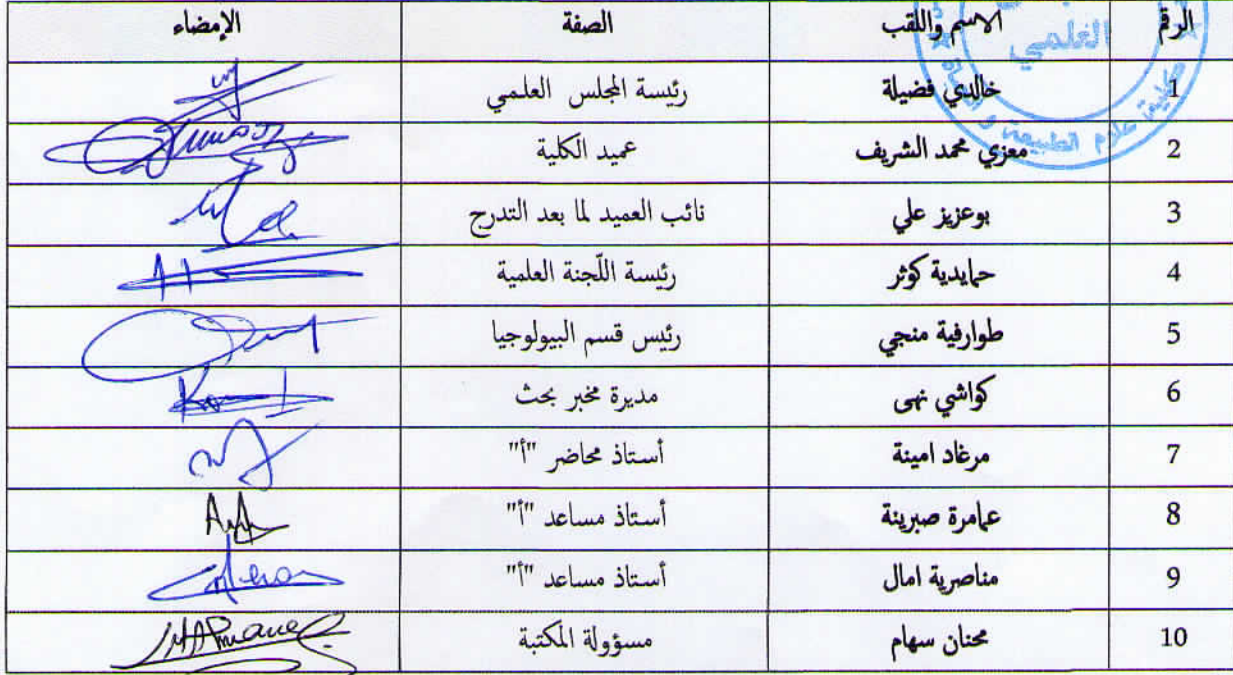 الرقم الاسم واللقب الصفة الإمضاء
العلمي
1 خالدي فضيلة رئيسة المجلس العلمي
2 معزي محمد الشريف عميد الكلية
علوم الطبيعة و
3 بوعزيز علي نائب العميد لما بعد التدرج
4 حمايدية كوثر رئيسة اللّجنة العلمية
5 طوارفية منجي رئيس قسم البيولوجيا
6 كواشي نهى مديرة مخبر بحث
7 مرغاد امينة أستاذ محاضر "أ"
8 عمامرة صبرينة أستاذ مساعد "أ"
9 مناصرية امال أستاذ مساعد "أ"
10 محنان سهام مسؤولة المكتبة